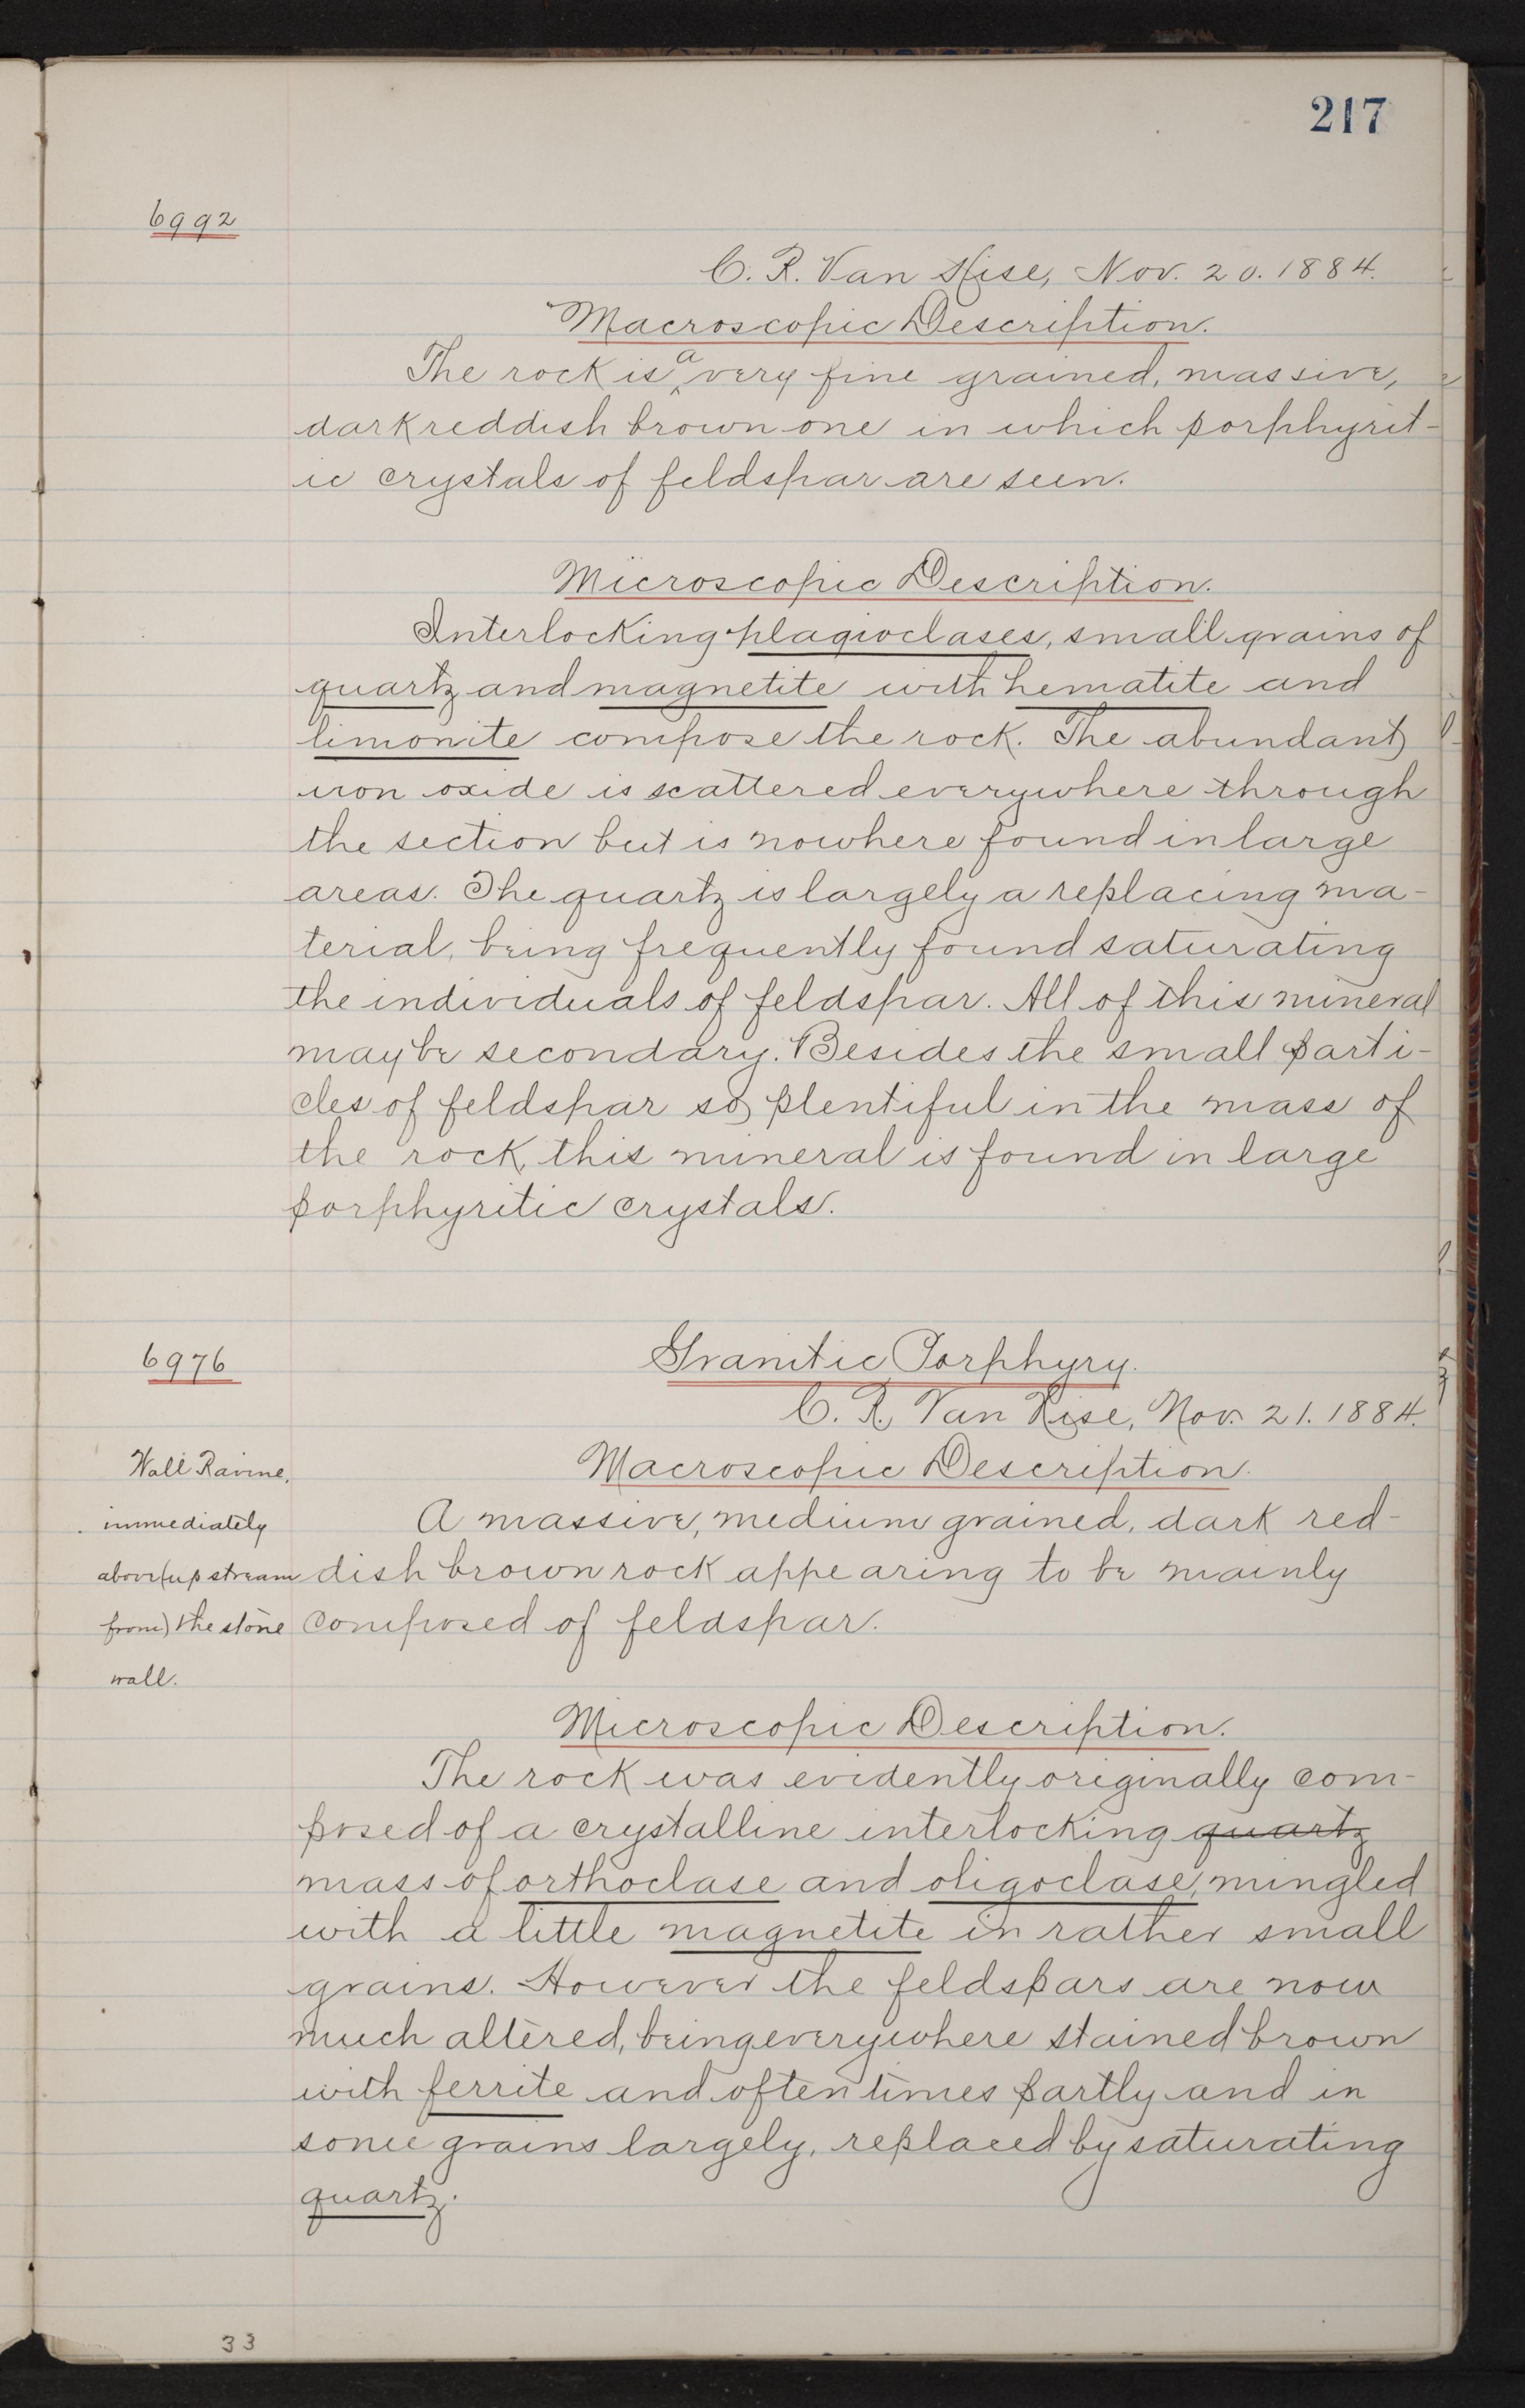 217
6992
C. R. Van Hise, Nov. 20. 1884.
Macroscopic Description.
The rock is a very fine grained, massive,
dark reddish brown one in which porphyrit-
ic crystals of feldspar are seen.
Microscopic Description.
Interlocking plagioclases, small grains of
quartz and magnetite with hematite and
limonite compose the rock. The abundant
iron oxide is scattered everywhere through
the section but is nowhere found in large
areas. The quartz is largely a replacing ma-
terial, being frequently found saturating
the individuals of feldspar. All of this mineral
may be secondary. Besides the small parti-
cles of feldspar so plentiful in the mass of
the rock, this mineral is found in large
porphyritic crystals.
6976
Granitic Porphyry.
C. R. Van Hise, Nov. 21. 1884.
Wall Ravine,
immediately
above (up stream
from) the stone
wall.
Macroscopic Description.
A massive, medium grained, dark red-
dish brown rock appearing to be mainly
composed of feldspar.
Microscopic Description.
The rock was evidently originally com-
posed of a crystalline interlocking quartz
mass of orthoclase and oligoclase, mingled
with a little magnetite in rather small
grains. However the feldspars are now
much altered, being everywhere stained brown
with ferrite and often times partly and in
some grains largely, replaced by saturating
quartz.
33